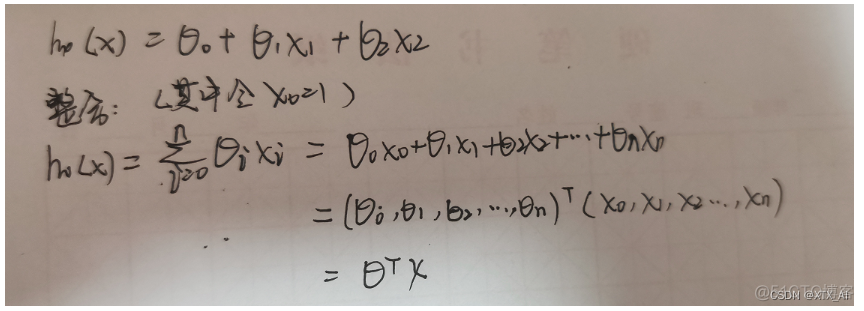 hθ(x) = θ₀ + θ₁x₁ + θ₂x₂
整合: (其中令 x₀=1)
hθ(x) = ∑ⁿᵢ₌₀ θᵢxᵢ = θ₀x₀+θ₁x₁+θ₂x₂+…+θₙxₙ
= (θ₀,θ₁,θ₂,…,θₙ)ᵀ(x₀,x₁,x₂…,xₙ)
= θᵀx
CSDN @XTX_AI